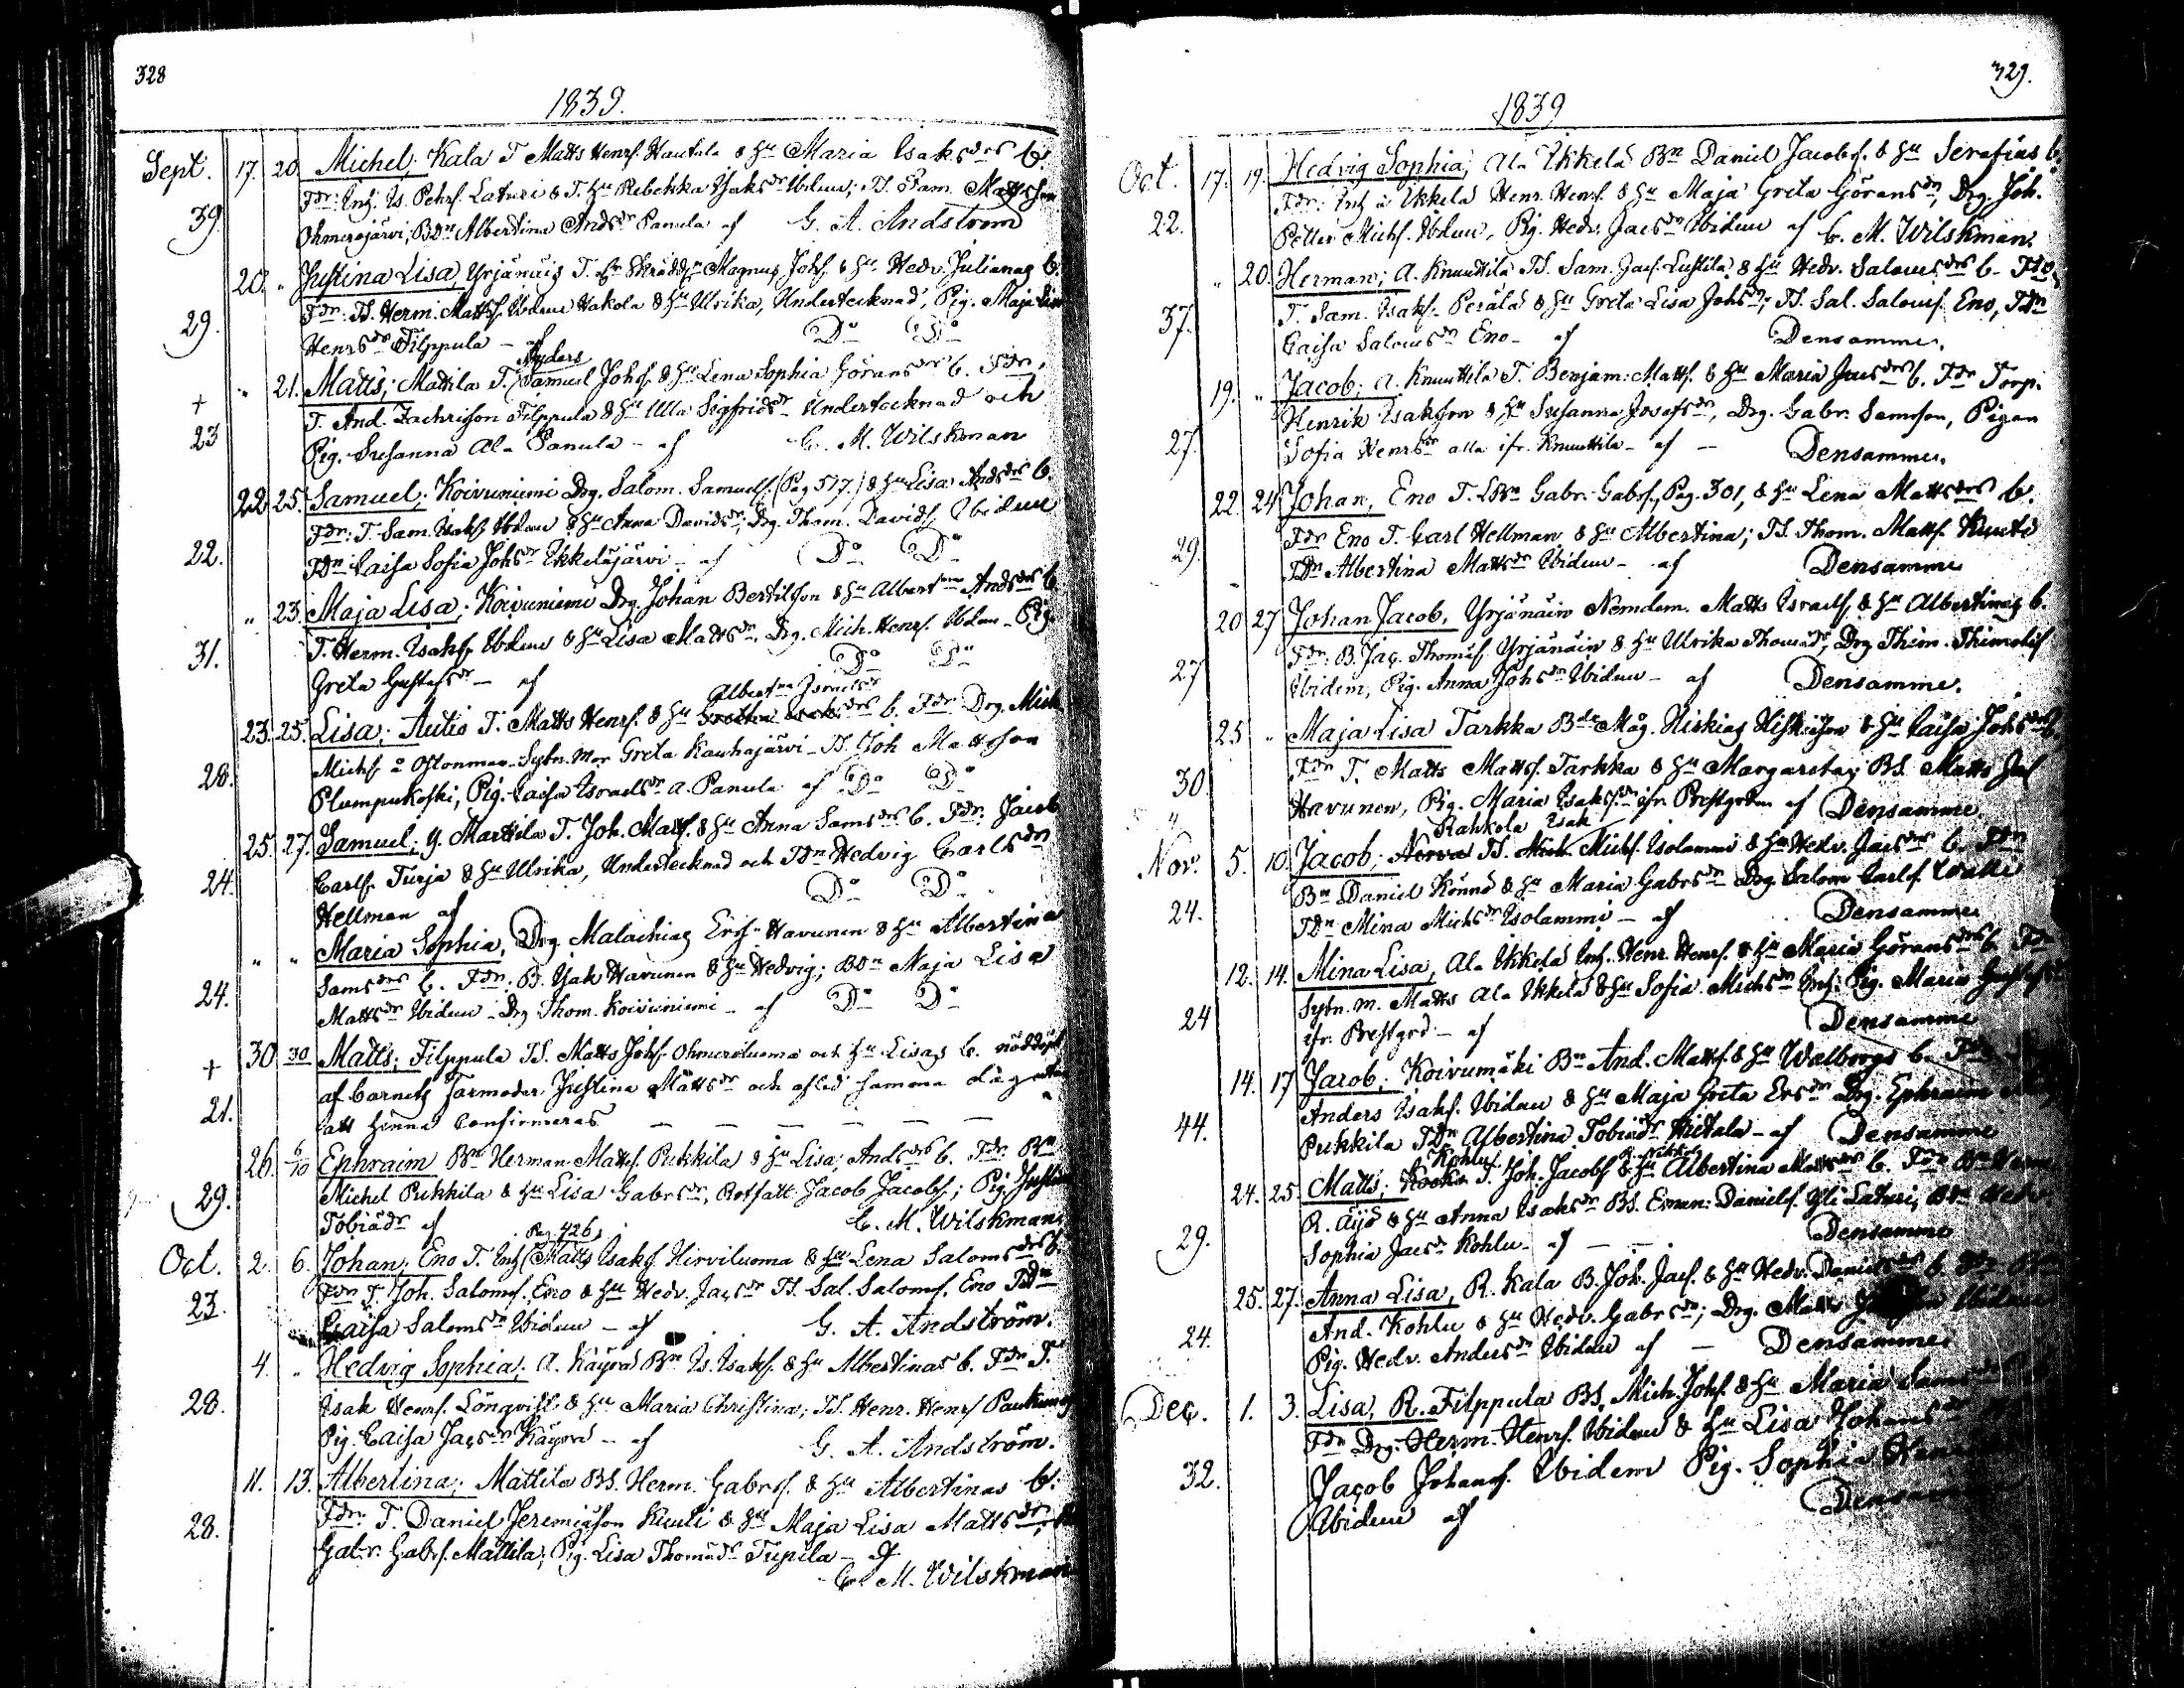 328
1839.
Sept. 17. 20. Michel; Kala T. Matts Henrs. Hautala & Hu Maria Isaksdrs b.
39. Fdr: Inh. Is. Pehrs. Laturi & T. Hu Rebekka Isaksdr Ibidem; TS. Sam. Mattsson
Ohmerojärvi; BDn Albertina Andsdr Panula af G. A. Andström
20. " Justina Lisa, Yrjänäis T. Skrädd. Magnus Johs. & Hu Hedv. Julianas b.
29. Fdr: TS. Herm. Mattss. Ibidem Hakola & Hu Ulrika, Undertecknad, Pig. Maja Lisa
Henrsdr Filppula – af Do Do
Anders
+ " 21. Matts; Mattila T. Samuel Johs. & Hu Lena Sophia Göransdrs b. Fdr:
23 T. And. Zachrisson Filppula & Hu Ulla Sigfridsdr Undertecknad och
Pig. Susanna Ala Panula – af C. M. Wilskman
22 25. Samuel; Koivuniemi Drg. Salom. Samuelss. (Pag 517.) & Hu Lisa Andsdrs b.
22. Fdr: T. Sam. Isakss. Ibidem & Hu Anna Davidsdr; Drg. Thom. Davids. Ibidem
TDn Caisa Sofia Johsdr Ikkeläjärvi – af Do Do
" 23. Maja Lisa; Koivuniemi Drg. Johan Bertilsson & Hu Albertina Andsdrs b.
31. T. Herm. Isakss. Ibidem & Hu Lisa Mattsdr, Drg. Mich. Henrs. Ibidem – Pig.
Greta Gustafsdr – af Do Do
Albertna Israelsdr
23. 25. Lisa; Autio T. Matts Henrs. & Hu b. Fdr: Drg. Mich.
28. Michss. å Ostonmaa – Sytn. Mor Greta Kauhajärvi – TS. Joh Mattsson
Plumpukoski, Pig. Caisa Israelsdr a. Panula af Do Do
25. 27. Samuel; Y. Marttila T. Joh. Matss. & Hu Anna Samsdrs b. Fdr: Jacob
24. Carlss. Turja & Hu Ulrika, Undertecknad och TDn Hedvig Carlsdr
Hellman af Do Do
" " Maria Sophia, Drg Malachias Ersss. Havunen & Hu Albertina
24. Samsdrs b. Fdr: B. Isak Havunen & Hu Hedvig; BDn Maja Lisa
Mattsdr Ibidem – Drg Thom. Koivuniemi – af Do Do
+ 30 30 Matts; Filppula TS. Matts Johss. Ohmeroluoma och Hu Lisas b. nöddöpt
21. af Barnets Farmoder Justina Mattsdr och afled samma dag utan
att hinna Confirmeras – – – – –
26. 6/10 Ephraim Bn Herman Mattss. Pukkila & Hu Lisa Andsdrs b. Fdr: Bn
29. Michel Pukkila & Hu Lisa Gabrsdr, Rotsatt Jacob Jacobss.; Pig. Justina
Tobiädr af C. M. Wilskman
Pag. 426.
Oct. 2. 6. Johan; Eno T. Inh. Matts Isakss. Hirviluoma & Hu Lena Salomsdrs b.
23. Fdr T. Joh. Saloms. Eno & Hu Hedv. Jacsdr TS. Sal. Saloms. Eno TDn
Caisa Salomsdr Ibidem – af G. A. Andström.
4. " Hedvig Sophia; A. Käyrä Bn Is. Isakss. & Hu Albertinas b. Fdr T.
28. Isak Henrs. Lönqvist & Hu Maria Christina; TS. Henr. Henrs.
Pig. Caisa Jacsdr Käyrä – af G. A. Andström.
11. 13. Albertina; Mattila BS. Herm. Gabrss. & Hu Albertinas b.
28. Fdr: T. Daniel Jeremiässon Knuti & Hu Maja Lisa Mattsdr,
Gabr. Gabrs. Mattila, Pig. Lisa Thomädr Tupila – af
C. M. Wilskman
329.
1839
Oct. 17. 19. Hedvig Sophia; Ala Ikkelä Bn Daniel Jacobss. & Hu Serafias b.
22. Fdr: Inh å Ikkelä Henr. Henrs. & Hu Maja Greta Göransdr, Drg. Joh.
Petter Michss. Ibidem, Pig. Hedv. Jacsdr Ibidem af C. M. Wilskman.
" 20. Herman; A. Knuuttila TS. Sam. Jacs. Luhtila & Hu Hedv. Salomsdrs b. Fdr
37. T. Sam. Isakss. Peräla & Hu Greta Lisa Johsdr; TS. Sal. Saloms. Eno, TDn
Caisa Salomsdr Eno – af Densamme.
19. " Jacob; A. Knuuttila T. Benjam: Mattss. & Hu Maria Jacsdrs b. Fdr Torp.
27. Henrik Isaksson & Hu Susanna Josefsdr, Drg. Gabr. Samsson, Pigan
Sofia Henrsdr alla ifr. Knuuttila – af – Densamme.
22. 24 Johan, Eno T. LBn Gabr. Gabrs., Pag. 301, & Hu Lena Mattsdrs b.
29. Fdr Eno T. Carl Hellman & Hu Albertina; TS. Thom. Mattss. Knuti
TDn Albertina Mattsdr Ibidem – af Densamme
20 27 Johan Jacob, Yrjänäin Nemdem. Matts Israelss. & Hu Albertinas b.
27 Fdr: B. Jac. Thomäs. Yrjänäin & Hu Ulrika Thomädr, Drg Thim. Thimoths.
Ibidem, Pig. Anna Johsdr Ibidem – af Densamme.
25 " Maja Lisa Tarkka Bde Måg. Hiskias Hiskiäson & Hu Caisa Johsdrs b.
30. Fdr T. Matts Mattss. Tarkka & Hu Margareta; BS. Matts
Havunen, Pig. Maria Isaksdr ifr. Prestgården af Densamme.
Rahkola Isak
Nov. 5. 10. Jacob; Norva TS. Mich. Michss. Isolammi & Hu Hedv. Jacsdrs b. Fdr
24. Bn Daniel Könnö & Hu Maria Gabrsdr Drg. Salom Carlss. Walli
TDn Mina Michsdr Isolammi – af Densamme
12. 14. Mina Lisa, Ala Ikkelä Inh. Henr. Henrs. & Hu Maria Göransdrs b. Fdr
24 Sytn. m. Matts Ala Ikkelä & Hu Sofia Michsdr Inh: Pig. Maria
ifr. Prestgrd – af Densamme
14. 17 Jacob; Koivumäki Bn And. Mattss. & Hu Walborgs b. Fdr
44. Anders Isakss. Ibidem & Hu Maja Greta Ersdr Drg. Ephraim
Pukkila TDn Albertina Tobiädr – af Densamme
Kohlu
24. 25 Matts; T. Joh. Jacobs. & Hu Albertina Mattsdrs b. Fdr Bn
29. R. Äijö & Hu Anna Isaksdr BS. Eman: Danielss. Yli Laturi, BDn Hedv.
Sophia Jacsdr Kohlu – af – – Densamme
25. 27. Anna Lisa, R. Kala B. Joh. Jacs. & Hu Hedv. Danielsdrs b. Fdr
24. And. Kohlu & Hu Hedv. Gabrsdr; Drg. Matts Ibidem
Pig. Hedv. Andersdr Ibidem af – Densamme
Dec. 1. 3. Lisa, R. Filppula BS. Mich. Johss. & Hu Maria Samsdrs
32. Fdr Drg. Herm. Henrs. Ibidem & Hu Lisa Johansdr
Jacob Johanss. Ibidem Pig. Sophia
Ibidem af Densamme